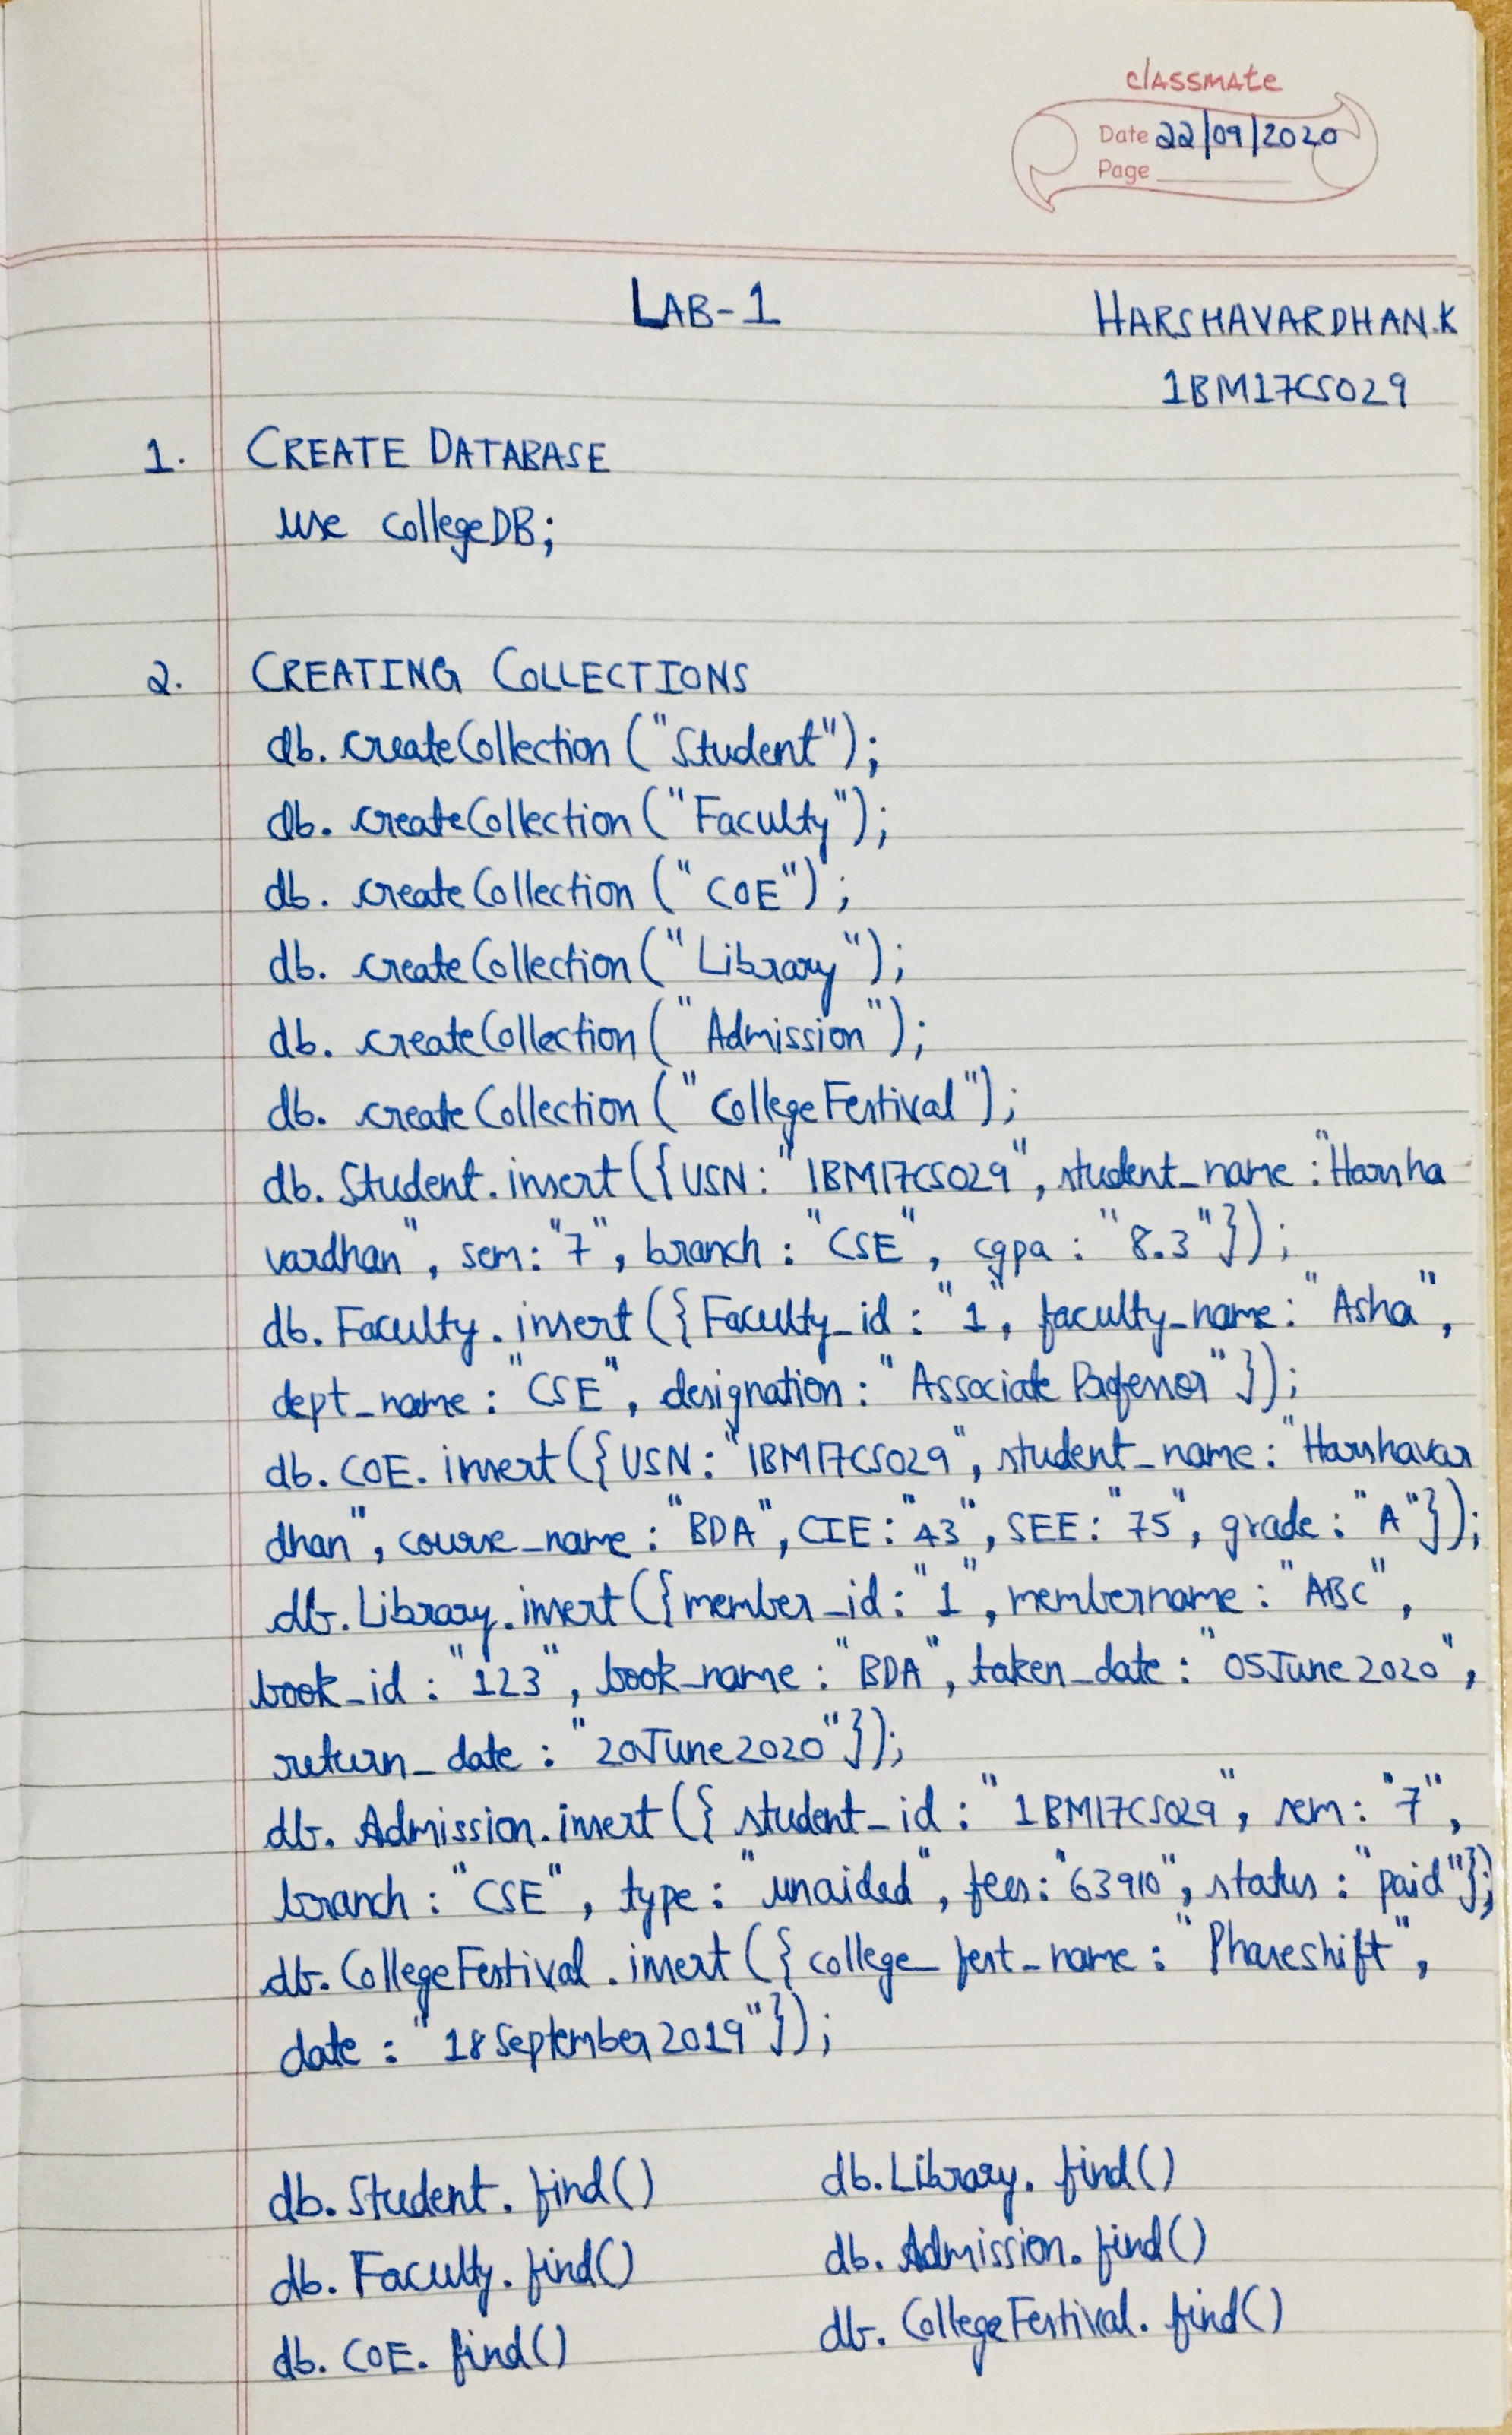 classmate
Date 22/09/2020
Page
LAB-1 HARSHAVARDHAN.K
1BM17CS029
1. CREATE DATABASE
use collegeDB;
2. CREATING COLLECTIONS
db. createCollection ("Student");
db. createCollection ("Faculty");
db. createCollection ("COE");
db. createCollection ("Library");
db. createCollection ("Admission");
db. createCollection ("CollegeFestival");
db. Student. insert ({USN: "1BM17CS029", student_name: "Harsha
vardhan", sem: "7", branch : "CSE", cgpa : "8.3"});
db. Faculty. insert ({Faculty_id : "1", faculty_name: "Asha",
dept_name : "CSE", designation : "Associate Professor"});
db. COE. insert ({USN: "1BM17CS029", student_name: "Harshavar
dhan", course_name : "BDA", CIE: "43", SEE: "75", grade : "A"});
db. Library. insert ({member_id: "1", membername : "ABC",
book_id : "123", book_name : "BDA", taken_date : "05June2020",
return_date : "20June2020"});
db. Admission. insert ({ student_id : "1BM17CS029", sem: "7",
branch : "CSE", type : "unaided", fees: "63910", status : "paid"});
db. CollegeFestival. insert ({ college_fest_name : "Phaseshift",
date : "18September2019"});
db. Student. find() db. Library. find()
db. Faculty. find() db. Admission. find()
db. COE. find() db. CollegeFestival. find()